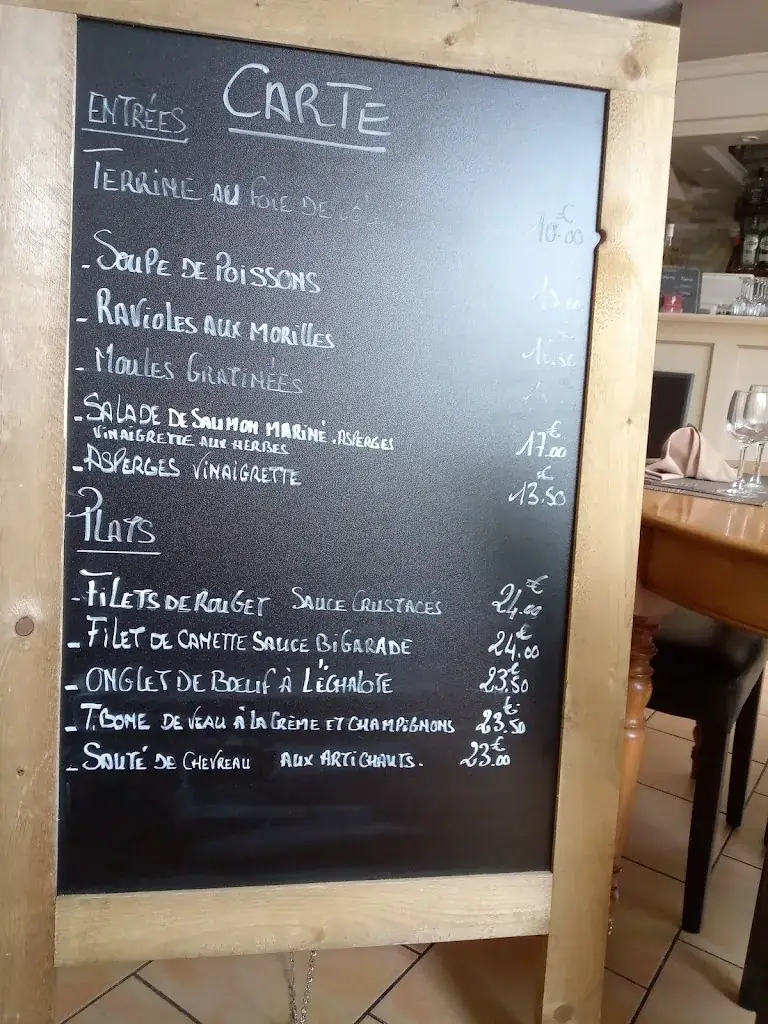 CARTE
ENTRÉES
TERRINE AU FOIE DE
10.€00
- SOUPE DE POISSONS
- RAVIOLES AUX MORILLES
- MOULES GRATINÉES
- SALADE DE SAUMON MARINÉ. ASPERGES
VINAIGRETTE AUX HERBES 17.€00
- ASPERGES VINAIGRETTE 13.€50
PLATS
- FILETS DE ROUGET SAUCE CRUSTACÉS 24.€00
- FILET DE CANETTE SAUCE BIGARADE 24.€00
- ONGLET DE BOEUF À L'ÉCHALOTE 23.€50
- T.BONE DE VEAU À LA CRÈME ET CHAMPIGNONS 23.€50
- SAUTÉ DE CHEVREAU AUX ARTICHAUTS. 23.€00